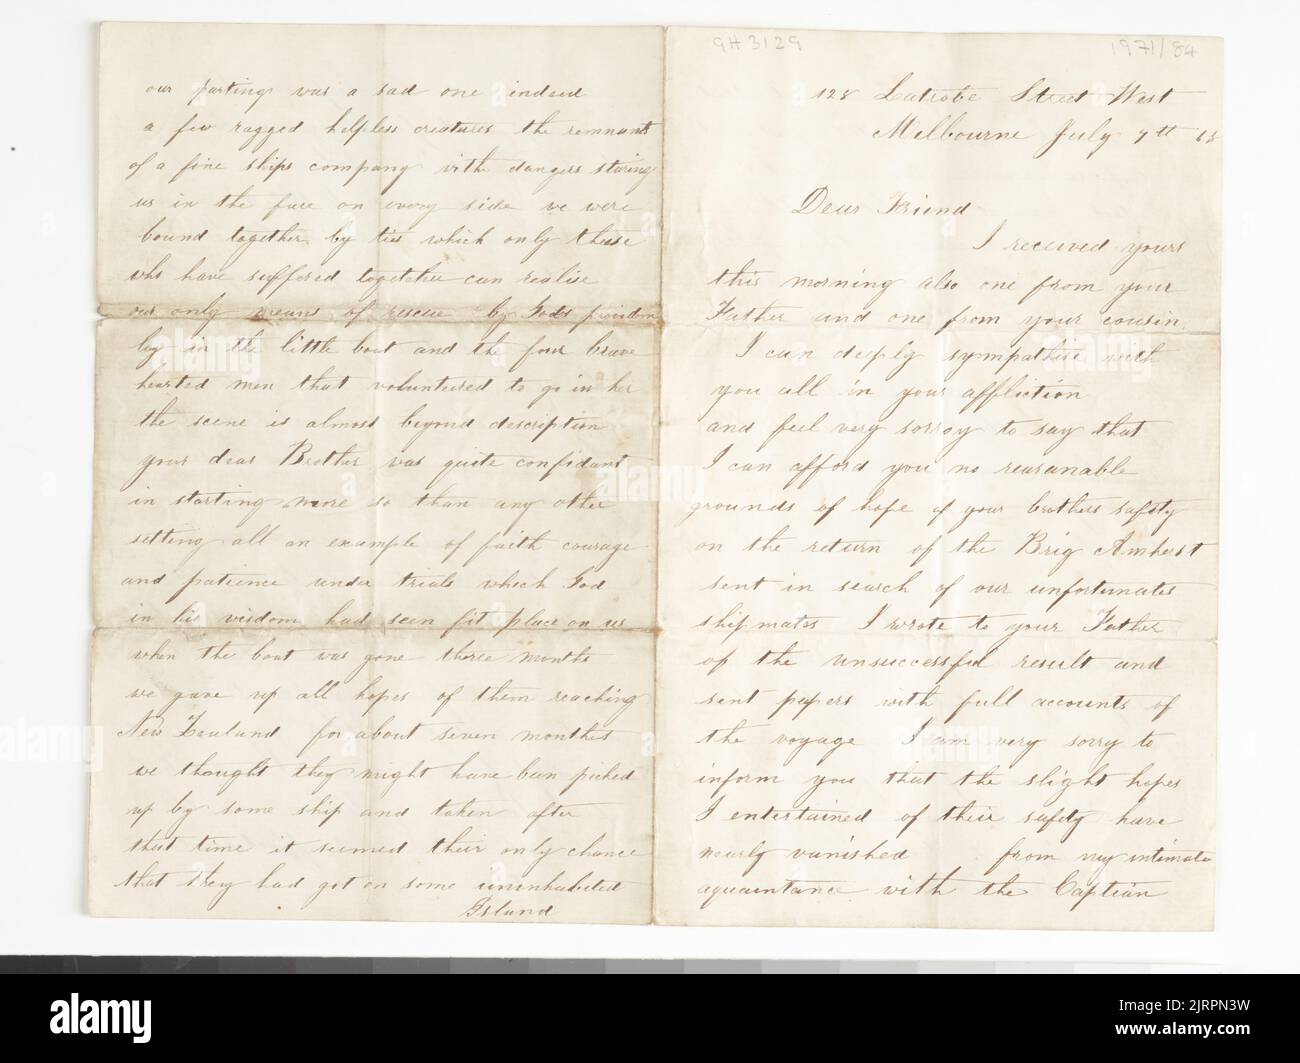 GH3129
1971/84
128 Latrobe Street West
Melbourne July 7th 68
Dear Friend
I received yours
this morning also one from your
Father and one from your cousin.
I can deeply sympathise with
you all in your affliction
and feel very sorroy to say that
I can afford you no reasanable
grounds of hope of your brothers safety
on the return of the Brig Amherst
sent in search of our unfortunates
shipmates I wrote to your Father
of the unsuccessful result and
sent papers with full accounts of
the voyage I am very sorry to
inform you that the slight hopes
I entertained of their safety have
nearly vanished from my intimate
aquaintance with the Captian
our parting was a sad one indeed
a few ragged helpless creatures the remnants
of a fine ships company with dangers staring
us in the face on every side we were
bound together by ties which only those
who have suffered together can realise
our only means of rescue by Gods providence
lay in the little boat and the four brave
hearted men that volunteered to go in her
the scene is almost beyond description
your dear Brother was quite confidant
in starting more so than any other
setting all an example of faith courage
and patience under trials which God
in his wisdom had seen fit place on us
when the boat was gone three months
we gave up all hopes of them reaching
New Zealand for about seven months
we thought they might have been picked
up by some ship and taken after
that time it seemed their only chance
that they had got on some uninhabited
Island
alamy
Image ID: 2JRPN3W
www.alamy.com